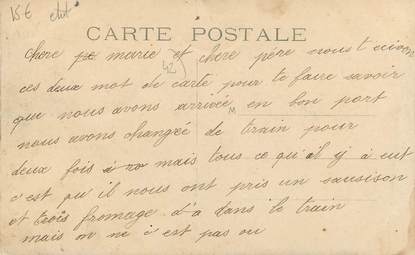 15 €
CARTE POSTALE
42
chere marie et chere père nous t'
ces deux mot de carte pour te faire savoir
que nous avons arrivée en bon port
nous avons changée de train pour
deux fois mais tous ce qu'il y à eut
c'est qu il nous ont pris un sausison
et trois fromage d'a dans le train
mais on ne c est pas ou